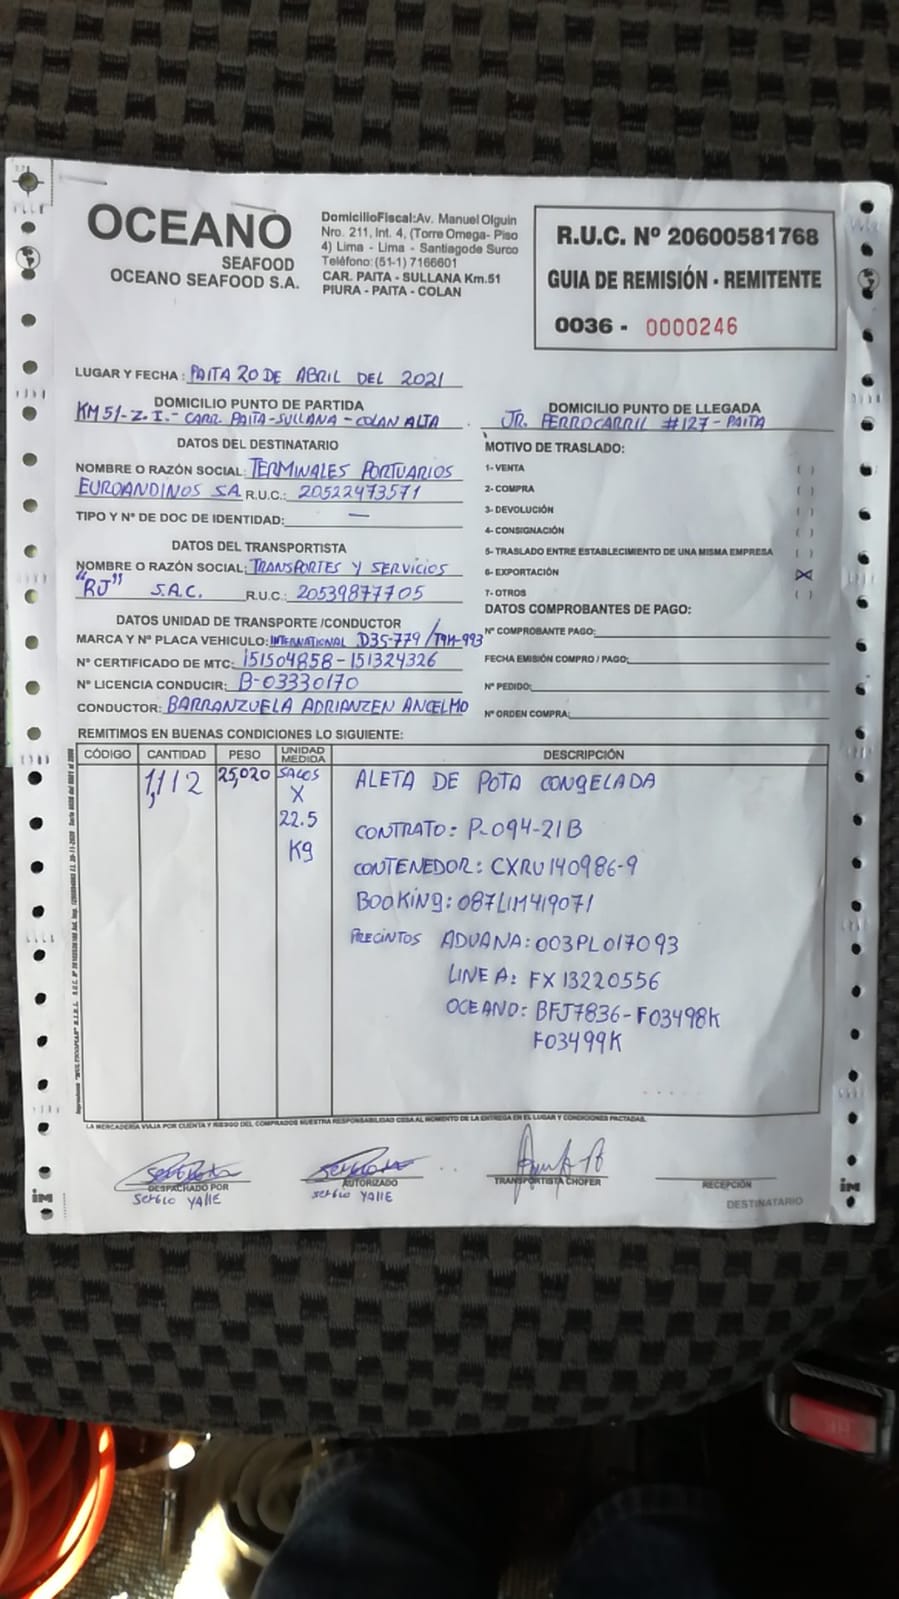 OCEANO
SEAFOOD
OCEANO SEAFOOD S.A.
DomicilioFiscal:Av. Manuel Olguin
Nro. 211, Int. 4, (Torre Omega- Piso
4) Lima - Lima - Santiagode Surco
Teléfono:(51-1) 7166601
CAR. PAITA - SULLANA Km.51
PIURA - PAITA - COLAN
R.U.C. Nº 20600581768
GUIA DE REMISIÓN - REMITENTE
0036 - 0000246
LUGAR Y FECHA : PAITA 20 DE ABRIL DEL 2021
DOMICILIO PUNTO DE PARTIDA
KM 51-Z.I.- CARR. PAITA-SULLANA-COLAN ALTA
DOMICILIO PUNTO DE LLEGADA
JR. FERROCARRIL #127 - PAITA
DATOS DEL DESTINATARIO
NOMBRE O RAZÓN SOCIAL: TERMINALES PORTUARIOS
EUROANDINOS S.A R.U.C.: 20522473571
TIPO Y Nº DE DOC DE IDENTIDAD: —
DATOS DEL TRANSPORTISTA
NOMBRE O RAZÓN SOCIAL: TRANSPORTES Y SERVICIOS
"RJ" S.A.C. R.U.C.: 20539877705
DATOS UNIDAD DE TRANSPORTE /CONDUCTOR
MARCA Y Nº PLACA VEHICULO: INTERNATIONAL D3S-779 / T9M-993
Nº CERTIFICADO DE MTC: 151504858-151324326
Nº LICENCIA CONDUCIR: B-03330170
CONDUCTOR: BARRANZUELA ADRIANZEN ANCELMO
MOTIVO DE TRASLADO:
1- VENTA ( )
2- COMPRA ( )
3- DEVOLUCIÓN ( )
4- CONSIGNACIÓN ( )
5- TRASLADO ENTRE ESTABLECIMIENTO DE UNA MISMA EMPRESA ( )
6- EXPORTACIÓN (X)
7- OTROS ( )
DATOS COMPROBANTES DE PAGO:
Nº COMPROBANTE PAGO:
FECHA EMISIÓN COMPRO / PAGO:
Nº PEDIDO:
Nº ORDEN COMPRA:
REMITIMOS EN BUENAS CONDICIONES LO SIGUIENTE:
CÓDIGO CANTIDAD PESO UNIDAD MEDIDA DESCRIPCIÓN
1,112 25,020 SACOS ALETA DE POTA CONGELADA
X
22.5 CONTRATO: P-094-21B
Kg
CONTENEDOR: CXRU140986-9
BOOKING: 087LIM419071
PRECINTOS ADUANA: 003PL017093
LINEA: FX13220556
OCEANO: BFJ7836-F03498K
F03499K
LA MERCADERÍA VIAJA POR CUENTA Y RIESGO DEL COMPRADOS NUESTRA RESPONSABILIDAD CESA AL MOMENTO DE LA ENTREGA EN EL LUGAR Y CONDICIONES PACTADAS.
DESPACHADO POR
SERGIO YALLE
AUTORIZADO
SERGIO YALLE
TRANSPORTISTA CHOFER
RECEPCIÓN
DESTINATARIO
im
im